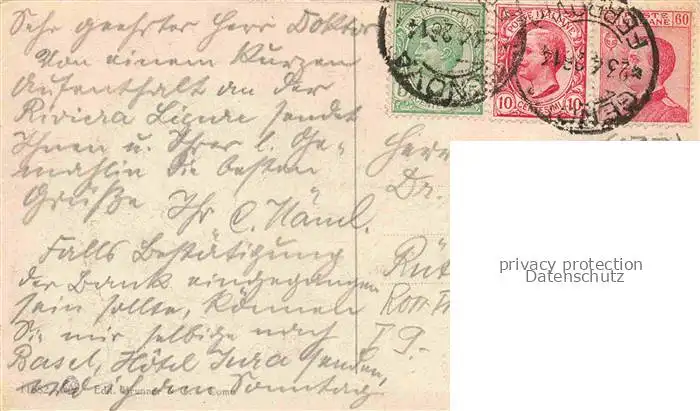 Sehr geehrter Herr Doktor
Von einem kurzen
Aufenthalt an der
Riviera Ligure sendet
Ihnen u. Ihrer l. Ge-
mahlin die besten
Grüße Ihr C.
Falls Bestätigung
der Bank eingegangen
sein sollte, können
Sie mir selbige nach
Basel, Hôtel Jura senden,
ich am Sonntag
Edit. Brunner & C. Como
POSTE ITALIANE
10 CENTESIMI 10
60
GENOVA
23.4.26 14
Herr
Dr.
Rüt
privacy protection
Datenschutz